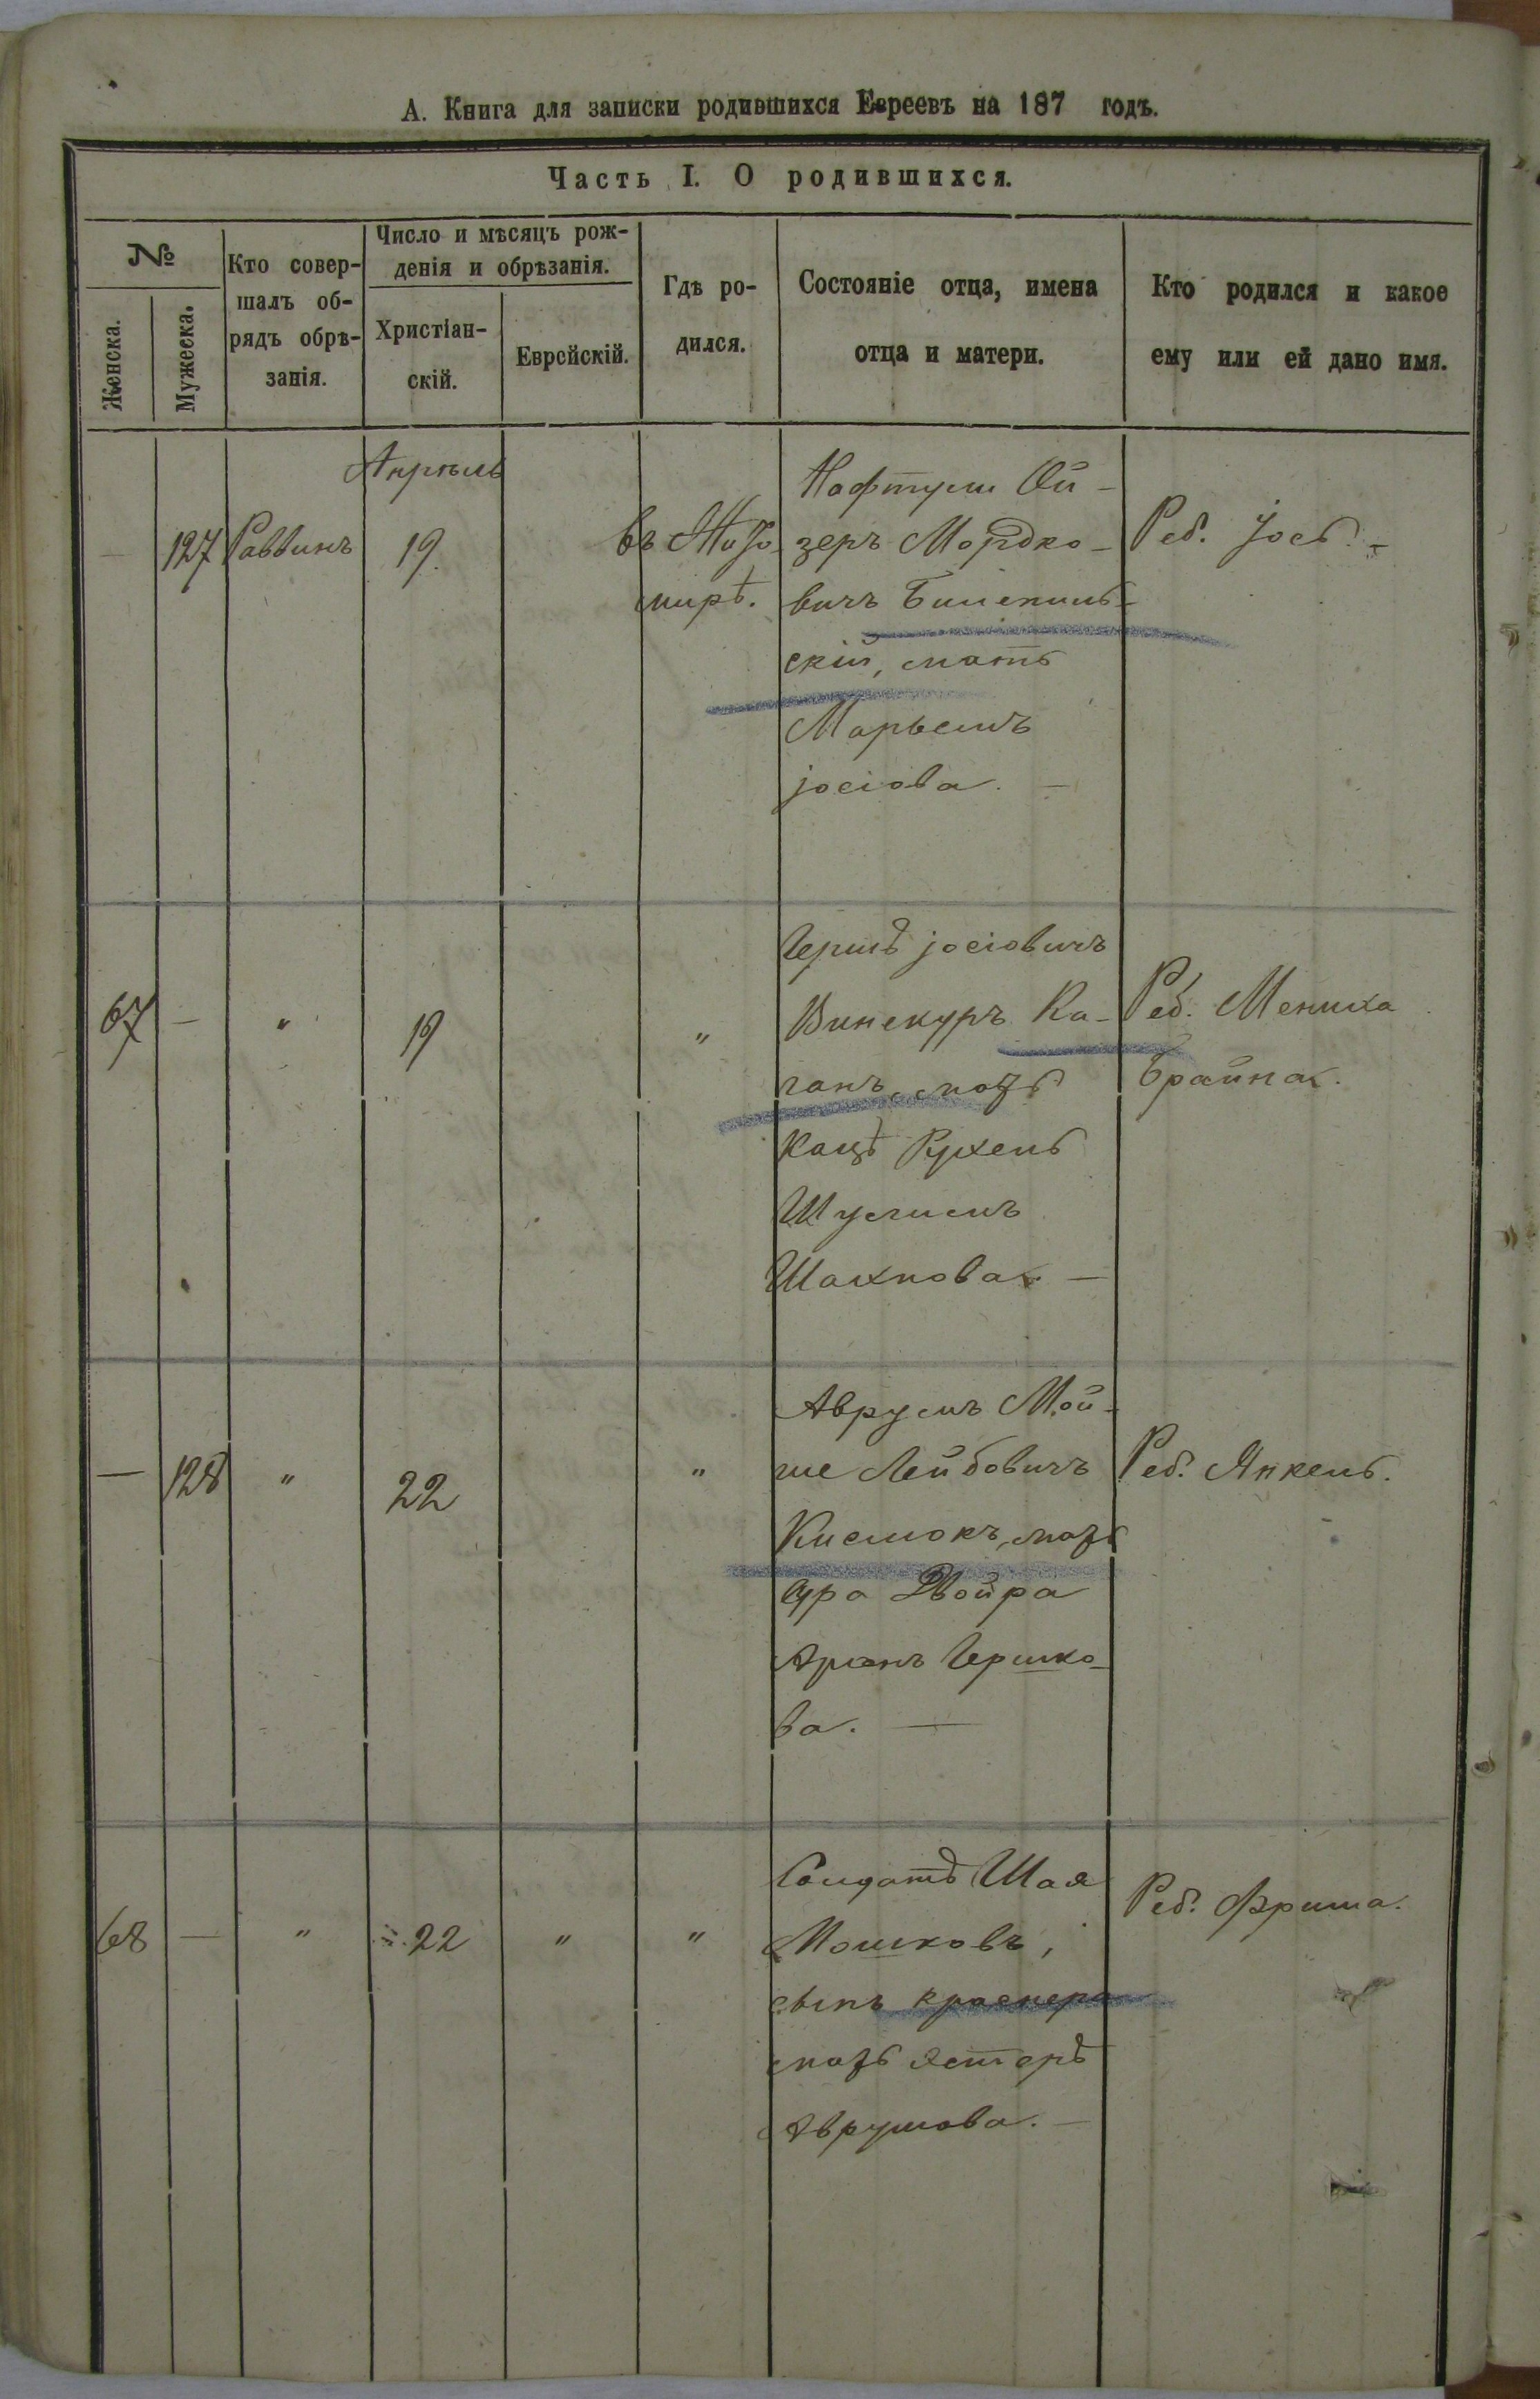 А. Книга для записки родившихся Евреевъ на 187 годъ.
Часть I. О родившихся.
№
Женска.
Мужеска.
Кто совер-
шалъ об-
рядъ обрѣ-
занія.
Число и мѣсяцъ рож-
денія и обрѣзанія.
Христіан-
скій.
Еврейскій.
Гдѣ ро-
дился.
Состояніе отца, имена
отца и матери.
Кто родился и какое
ему или ей дано имя.
Апрѣль
— 127 Раввинъ 19.
въ Жито
мирѣ.
Нафтули Ой-
зеръ Мордко-
вичъ
скій, мать
Марьемъ
јосіова. —
Реб. Јось. -
67 — " 19 "
Гершъ јосіовичъ
Винокуръ Ка-
ганъ, мать
Кацъ Рухель
Шахнова. —
Реб. Мениха
Брайна.
— 128 " 22 "
Аврумъ Мой-
ше Лейбовичъ
мать
Сура Двойра
Гершко-
ва. —
Реб. Янкель.
68 — " 22 " "
Солдатъ Шая
Мошковъ,
сынъ Краснера
мать Эстеръ
Аврумова. —
Реб. Фрима.